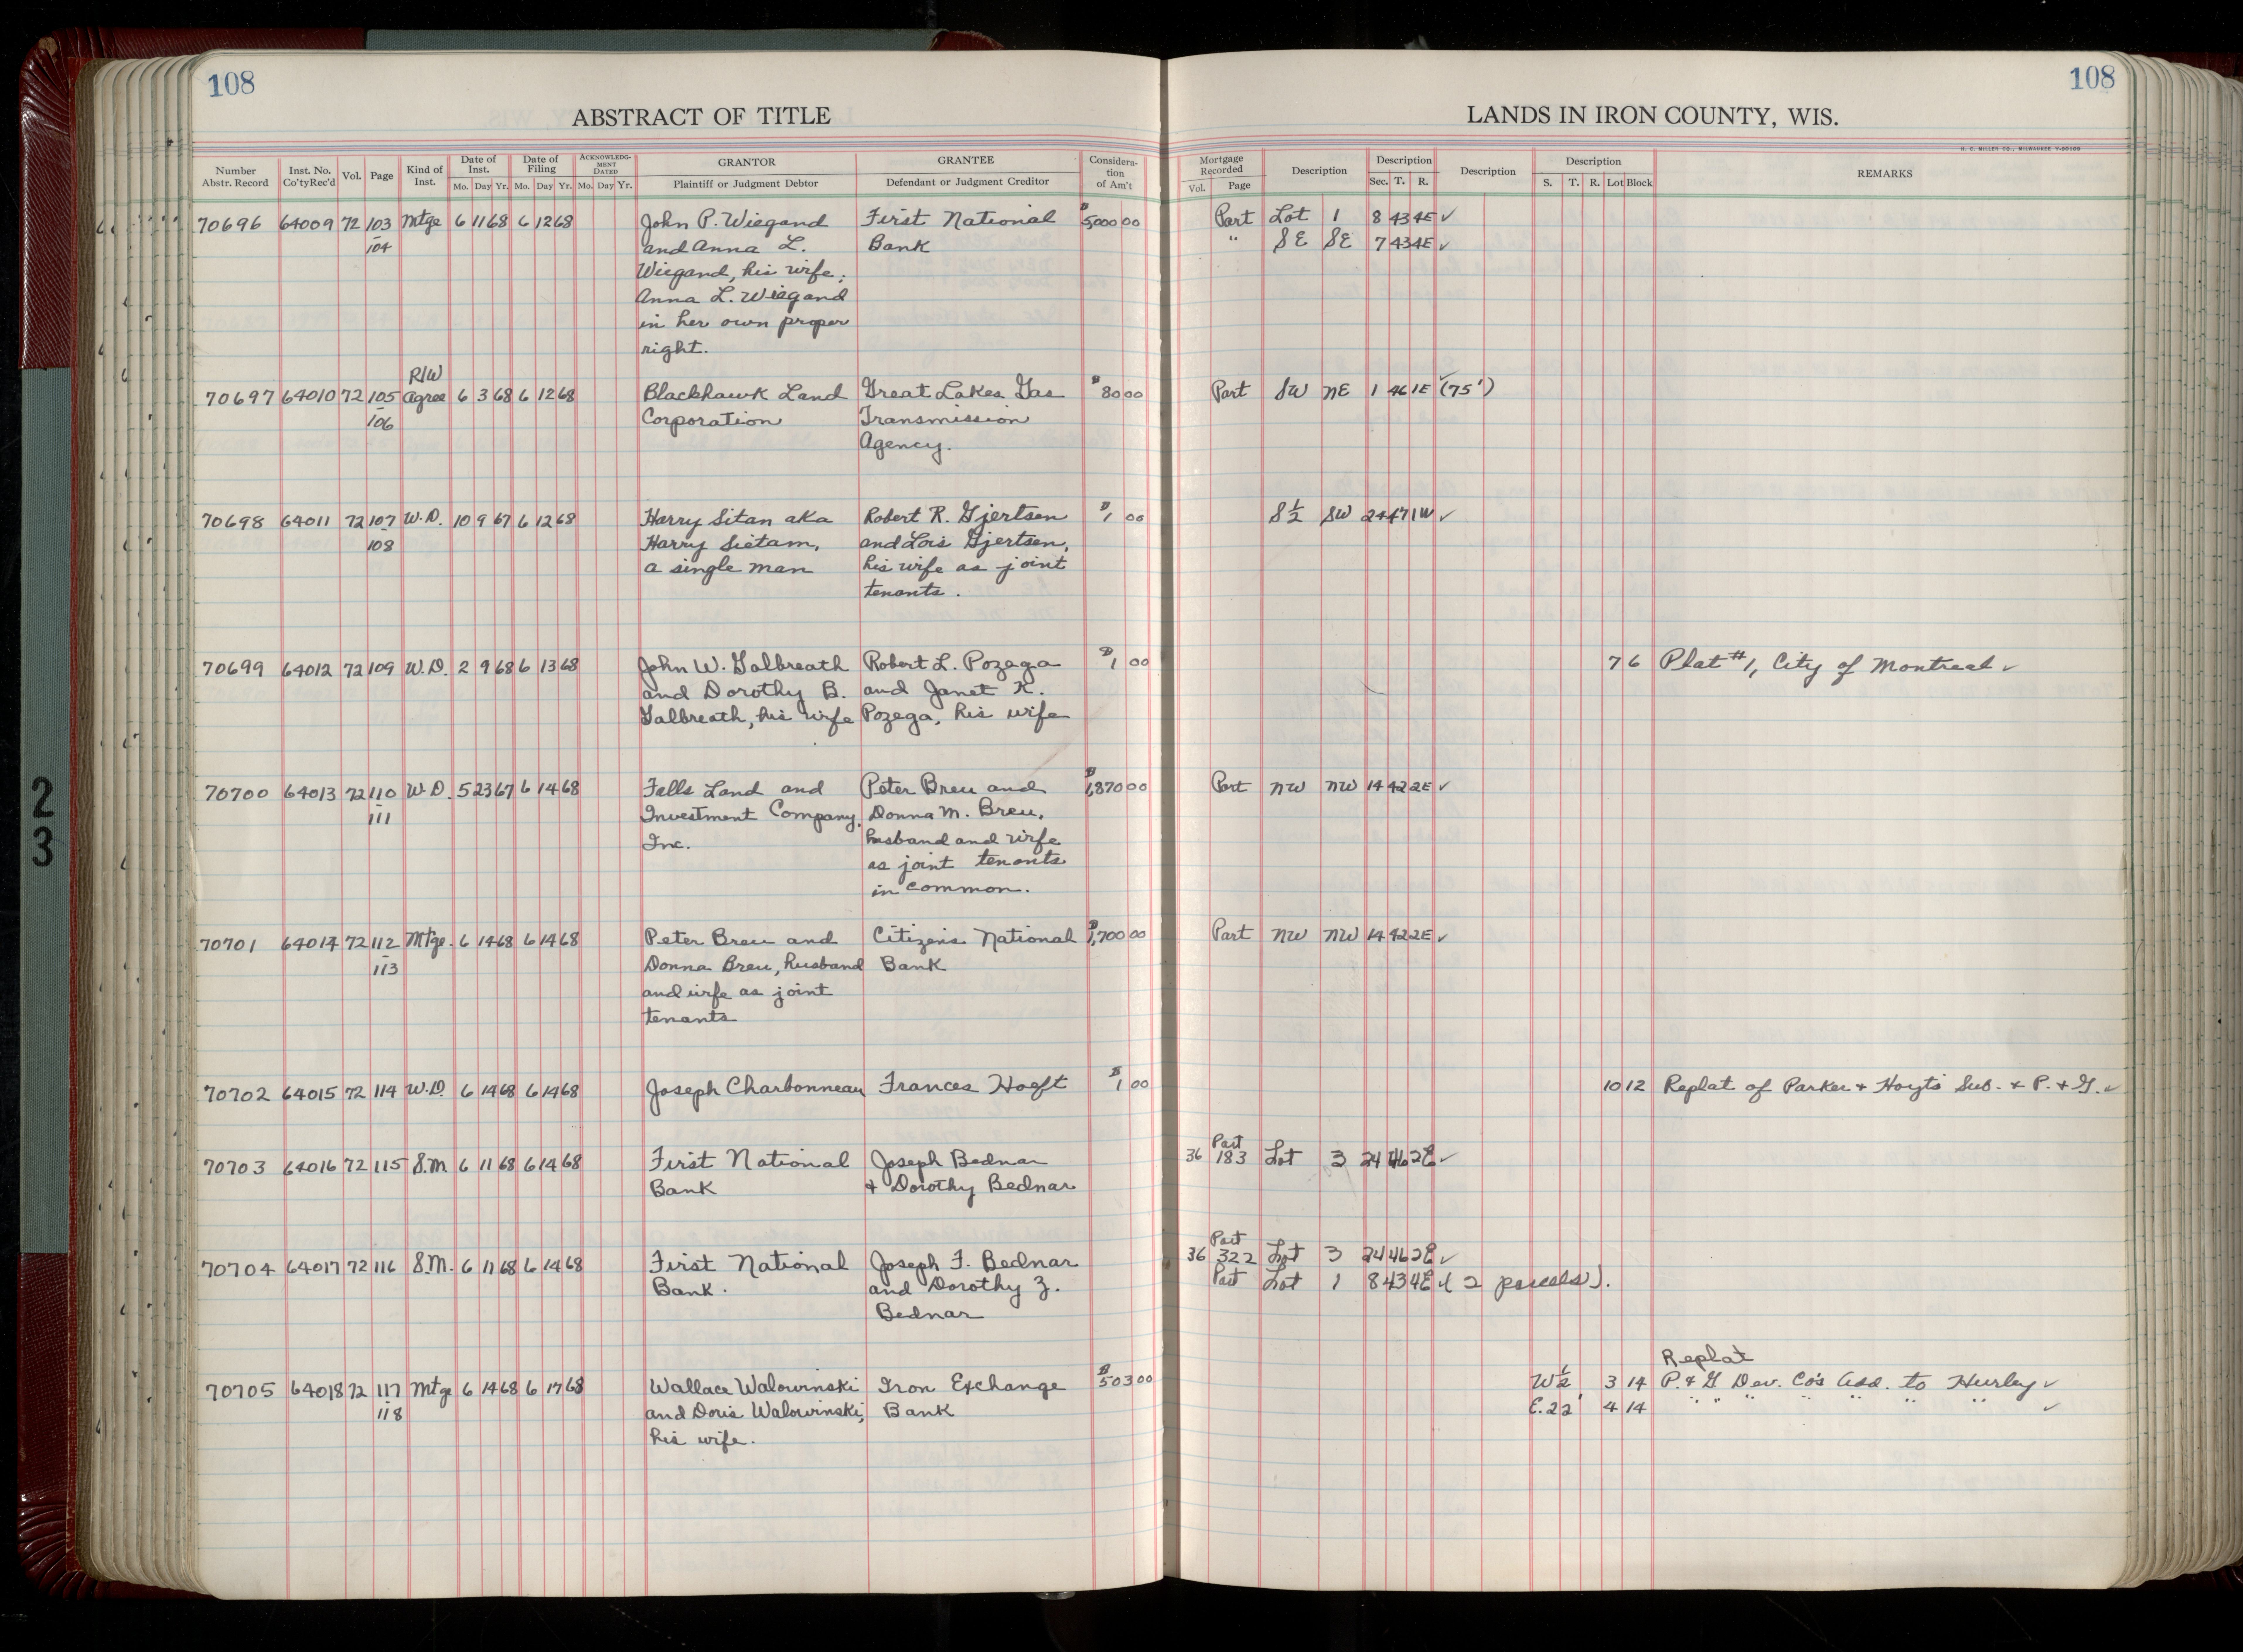 108
108
ABSTRACT OF TITLE
LANDS IN IRON COUNTY, WIS.
H. C. MILLER CO., MILWAUKEE
Number Abstr. Record | Inst. No. Co'ty Rec'd | Vol. | Page | Kind of Inst. | Date of Inst. Mo. Day Yr. | Date of Filing Mo. Day Yr. | ACKNOWLEDGMENT DATED Mo. Day Yr. | GRANTOR Plaintiff or Judgment Debtor | GRANTEE Defendant or Judgment Creditor | Consideration of Am't | Mortgage Recorded Vol. Page | Description | Description Sec. T. R. | Description | Description S. T. R. Lot Block | REMARKS
70696 64009 72 103 Mtge 6 11 68 6 12 68 John P. Wiegand First National $5,000 00 Part Lot 1 8 43 4E ✓
104 and Anna L. Bank " SE SE 7 43 4E ✓
Wiegand, his wife;
Anna L. Wiegand
in her own proper
right.
R/W
70697 64010 72 105 Agree 6 3 68 6 12 68 Blackhawk Land Great Lakes Gas $80 00 Part SW NE 1 46 1E ✓ (75')
106 Corporation Transmission
Agency.
70698 64011 72 107 W.D. 10 9 67 6 12 68 Harry Sitan aka Robert R. Gjertsen $1 00 S½ SW 24 47 1W ✓
108 Harry Sietam, and Lois Gjertsen,
a single man his wife as joint
tenants.
70699 64012 72 109 W.D. 2 9 68 6 13 68 John W. Galbreath Robert L. Pozega $1 00 7 6 Plat #1, City of Montreal ✓
and Dorothy B. and Janet K.
Galbreath, his wife Pozega, his wife
70700 64013 72 110 W.D. 5 23 67 6 14 68 Falls Land and Peter Breu and $1,870 00 Part NW NW 14 42 2E ✓
111 Investment Company, Donna M. Breu,
Inc. husband and wife
as joint tenants
in common.
70701 64014 72 112 Mtge. 6 14 68 6 14 68 Peter Breu and Citizens National $1,700 00 Part NW NW 14 42 2E ✓
113 Donna Breu, husband Bank
and wife as joint
tenants
70702 64015 72 114 W.D. 6 14 68 6 14 68 Joseph Charbonneau Frances Hooft $1 00 10 12 Replat of Parker + Hoyt's Sub. + P. + G. ✓
Part
70703 64016 72 115 S.M. 6 11 68 6 14 68 First National Joseph Bednar 36 183 Lot 3 24 46 2E ✓
Bank + Dorothy Bednar
Part
70704 64017 72 116 S.M. 6 11 68 6 14 68 First National Joseph F. Bednar 36 322 Lot 3 24 46 2E ✓
Bank. and Dorothy Z. Part Lot 1 8 43 4E ✓ (2 parcels).
Bednar
Replat
70705 64018 72 117 Mtge 6 14 68 6 17 68 Wallace Walowinski Iron Exchange $503 00 W½ 3 14 P. + G Dev. Co's Add. to Hurley ✓
118 and Doris Walowinski, Bank E. 22' 4 14 " " " " " " " ✓
his wife.
23